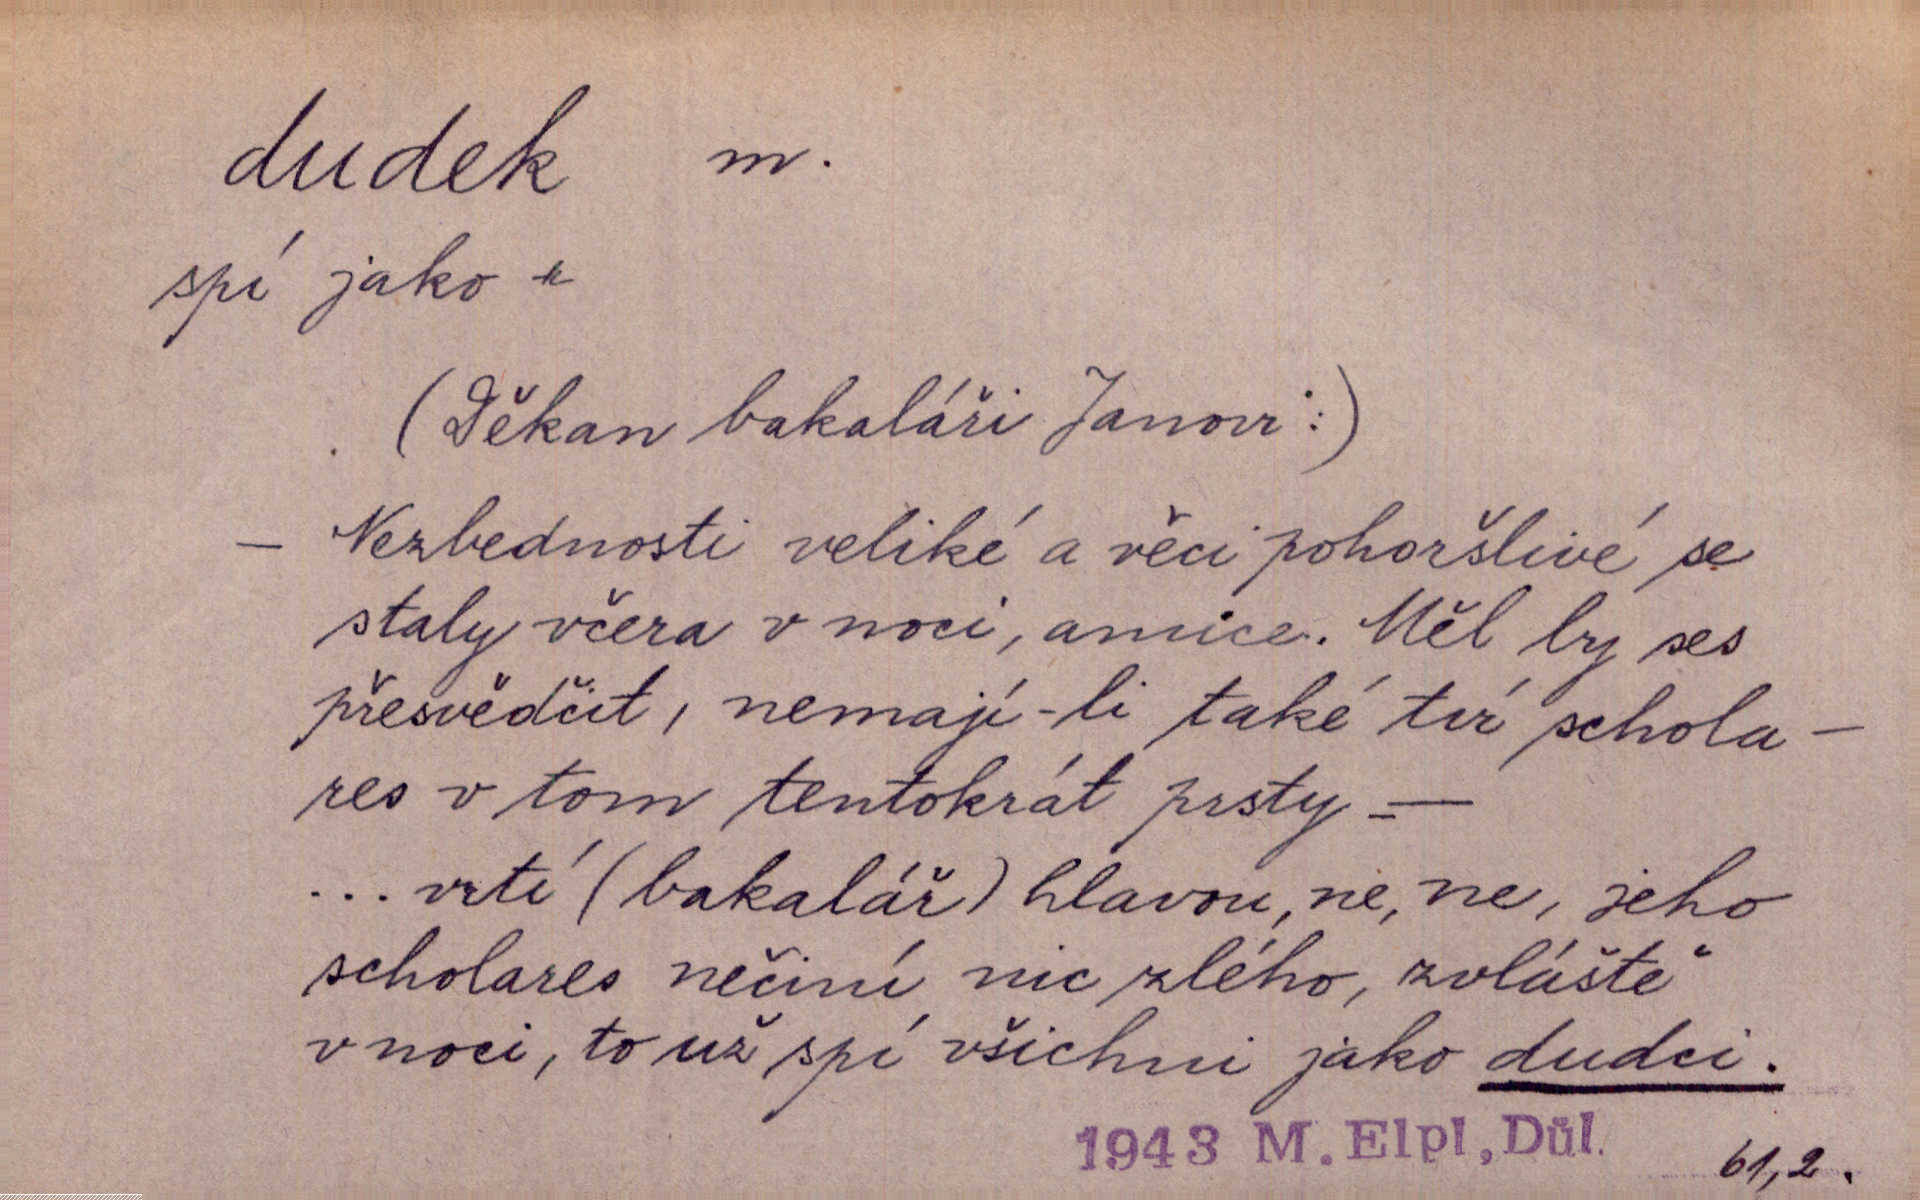 dudek m.
spí jako "
(Děkan bakaláři Janovi:)
— Nezbednosti veliké a věci pohoršlivé se
staly včera v noci, amice. Měl by ses
přesvědčit, nemají-li také tví schola-
res v tom tentokrát prsty —
... vrtí (bakalář) hlavou, ne, ne, jeho
scholares nečiní nic zlého, zvláště
v noci, to už spí všichni jako dudci.
1943 M. Elpl, Důl. 61,2.